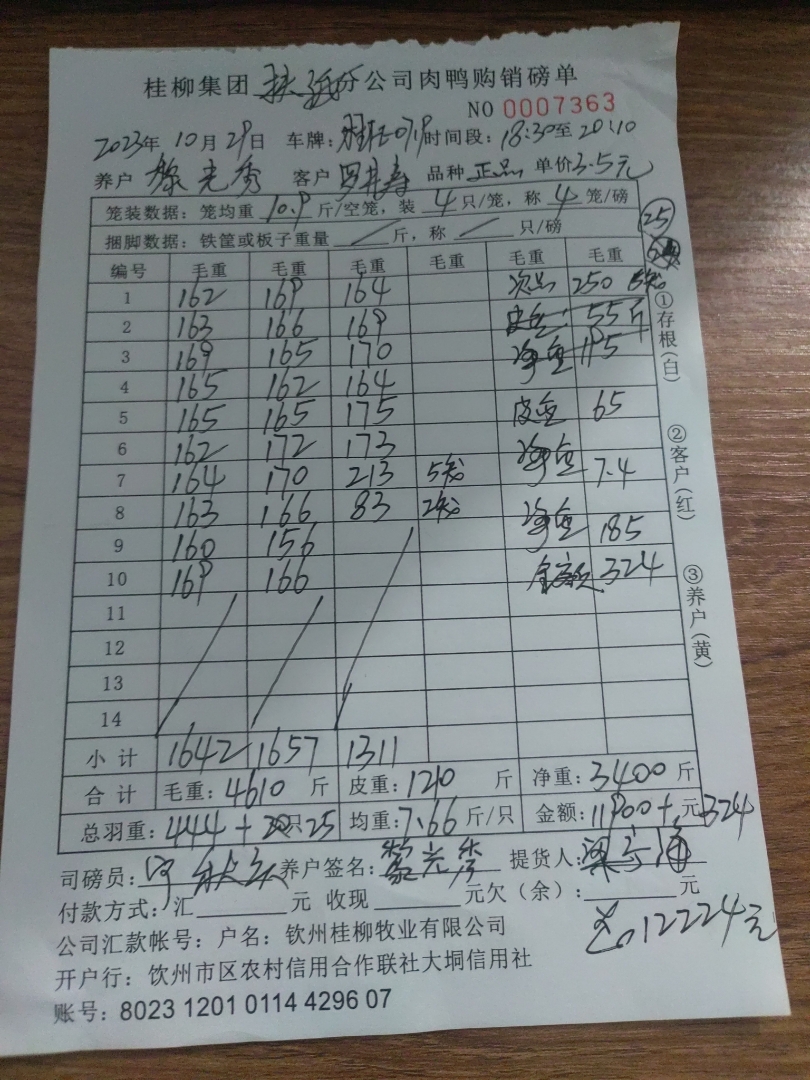 桂柳集团 扶绥分公司肉鸭购销磅单
NO 0007363
2023年 10月29日 车牌: 时间段: 18:30至20:10
养户 黎光秀 客户 品种 正品 单价3.5元
笼装数据: 笼均重 10.9 斤/空笼, 装 4 只/笼, 称 4 笼/磅
25
捆脚数据: 铁筐或板子重量 / 斤, 称 / 只/磅
编号 毛重 毛重 毛重 毛重 毛重 毛重
1 162 169 164 次品 250 5笼
2 163 166 169 皮重: 55斤
3 169 165 170 净重 195
4 165 162 164
5 165 165 175 皮重 65
6 162 172 173 净重
7 164 170 213 5笼 7.4
8 163 166 83 2笼 净重 185
9 160 156
10 169 166 金额 324
11
12
13
14
小计 1642 1657 1311
合计 毛重: 4610 斤 皮重: 1210 斤 净重: 3400 斤
总羽重: 444 + 只 25 均重: 7.66 斤/只 金额: 11900 + 元 324
司磅员: 养户签名: 黎光秀 提货人:
付款方式: 汇 元 收现 元欠(余): 元
12224元
公司汇款帐号: 户名: 钦州桂柳牧业有限公司
开户行: 钦州市区农村信用合作联社大垌信用社
账号: 8023 1201 0114 4296 07
①存根(白)
②客户(红)
③养户(黄)